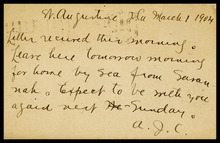 St. Augustine Fla March 1 1904
Letter recieved this morning.
Leave here tomorrow morning
for home by sea from Savan-
nah. Expect to be with you
again next Sunday.
A. J. C.